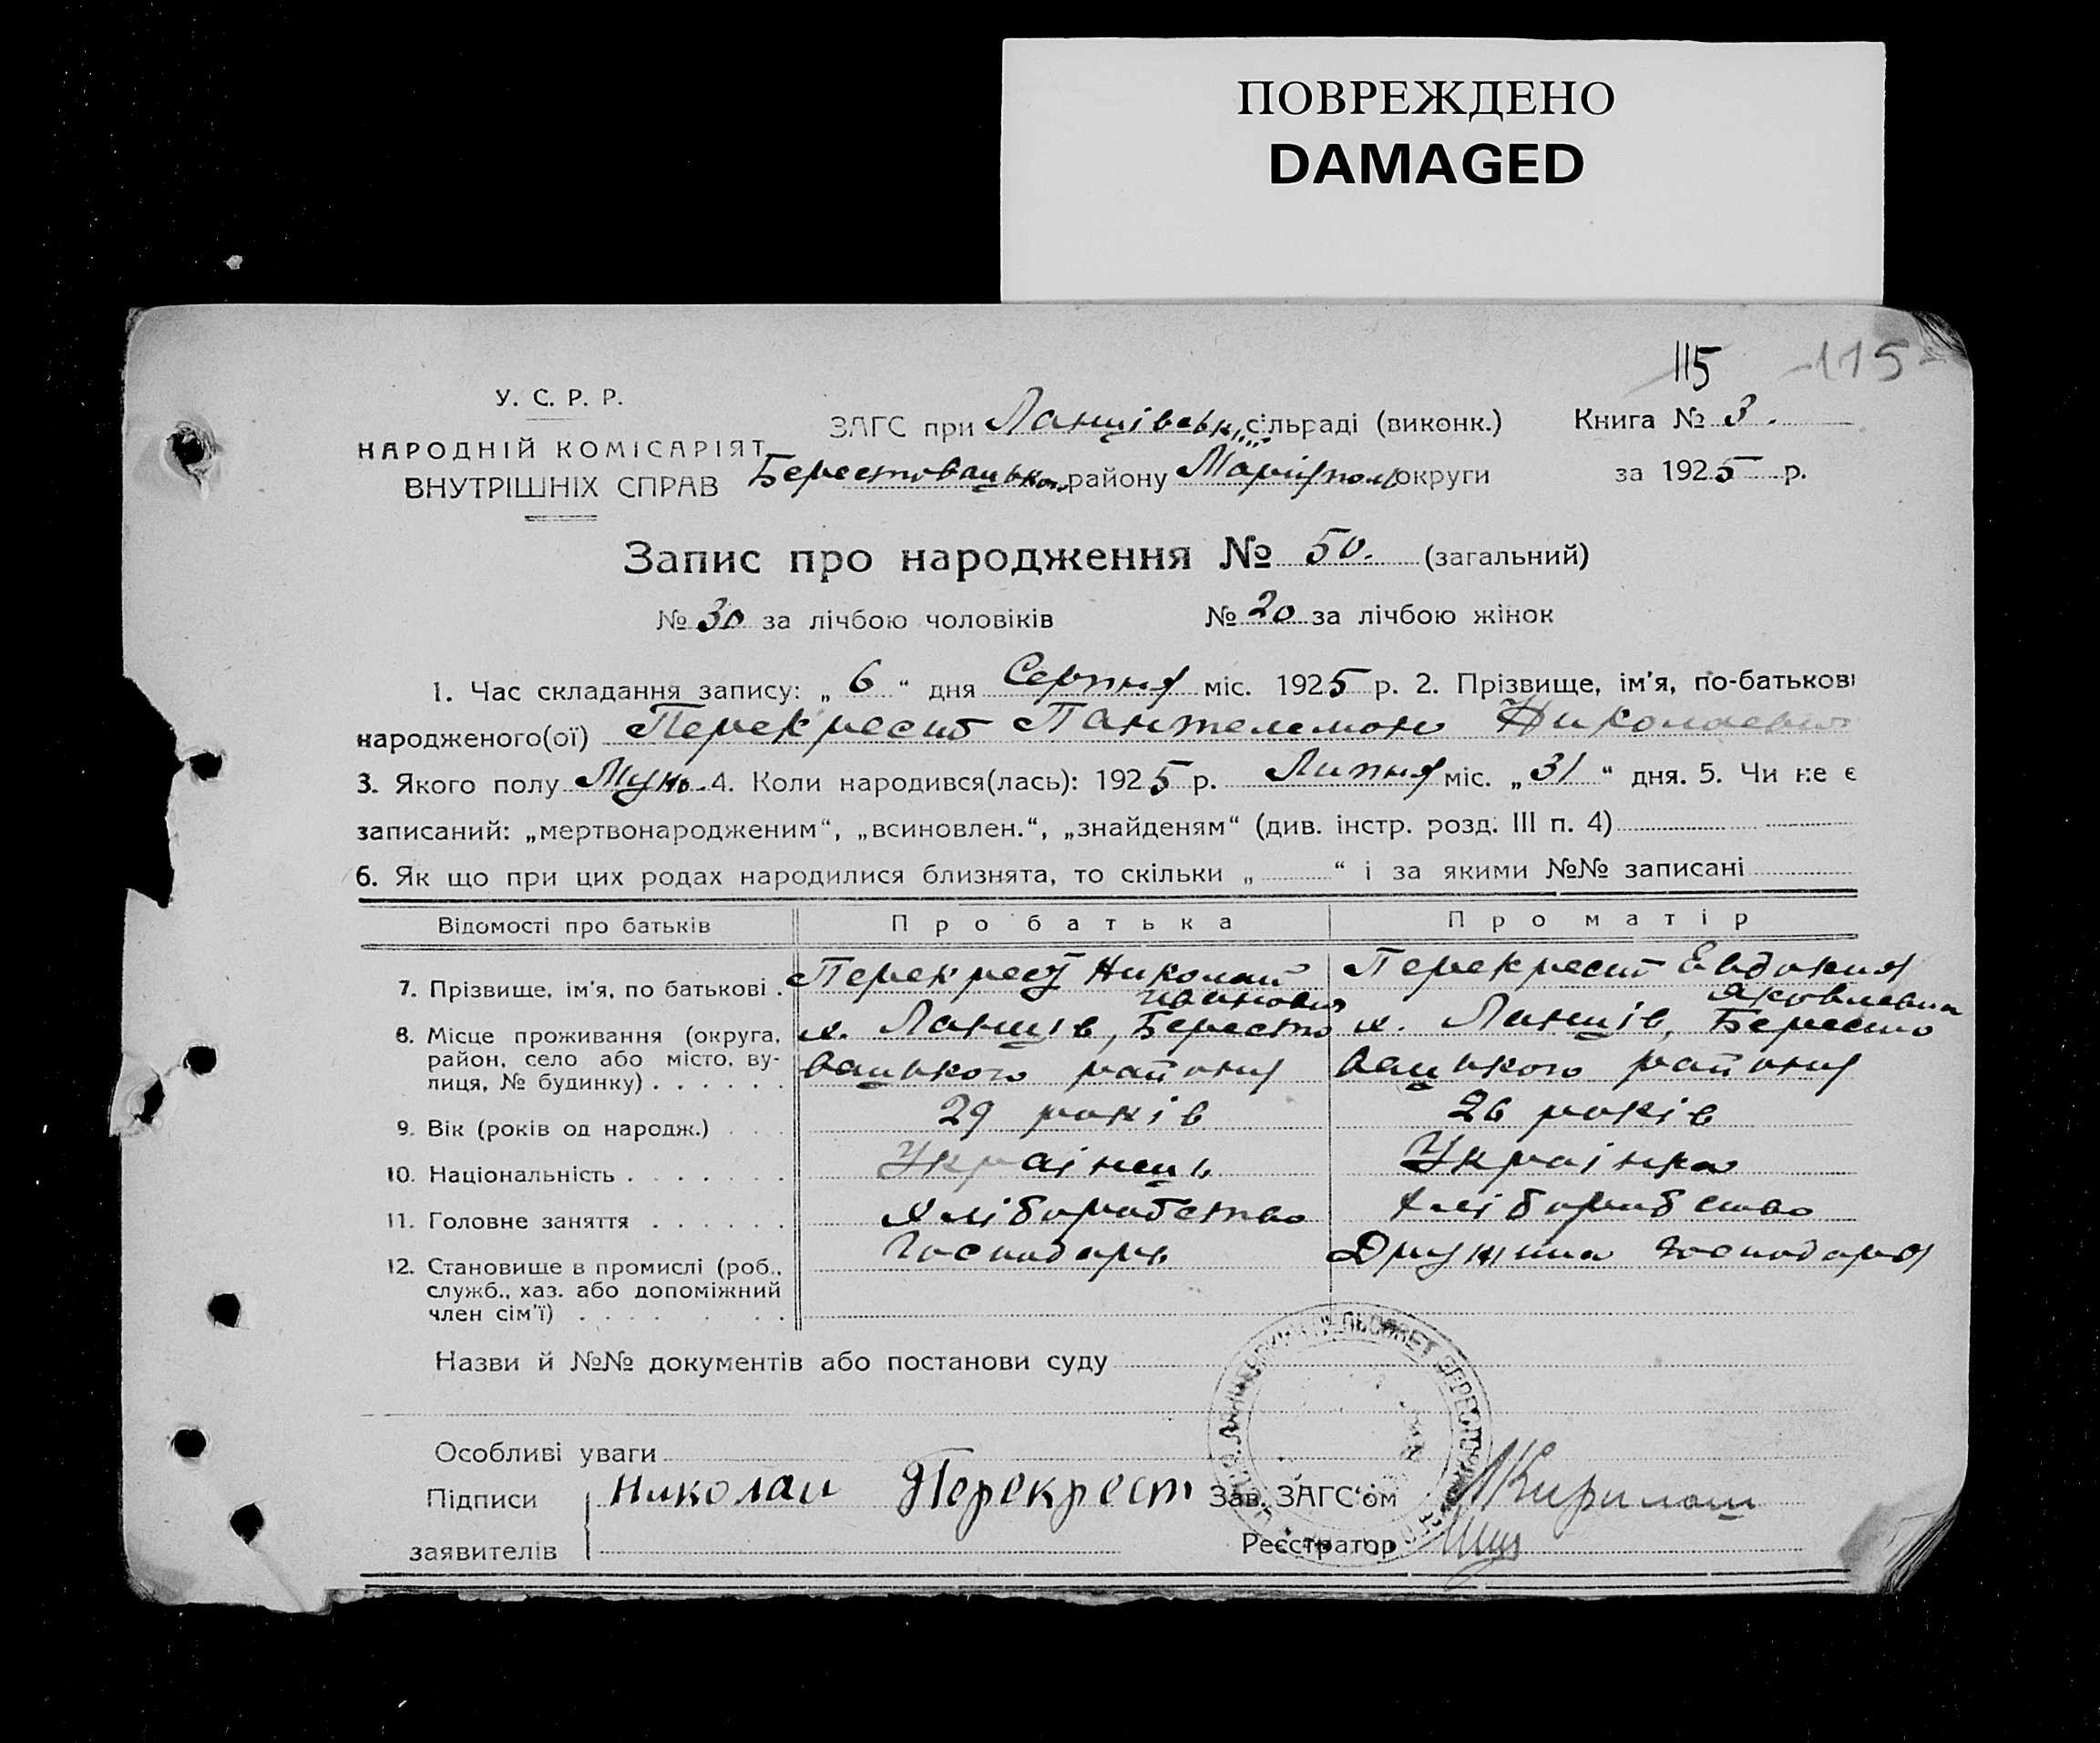 ПОВРЕЖДЕНО
DAMAGED
115 -115-
У. С. Р. Р.
НАРОДНІЙ КОМІСАРІЯТ
ВНУТРІШНІХ СПРАВ
ЗАГС при Ланцівськ. сільраді (виконк.) Книга № 3.
Берестовацького району Маріупол. округи за 1925 р.
Запис про народження № 50. (загальний)
№ 30 за лічбою чоловіків № 20 за лічбою жінок
1. Час складання запису: „ 6 “ дня Серпня міс. 1925 р. 2. Прізвище, ім'я, по-батькові
народженого(ої) Перекрест Пантелемон Николаевич
3. Якого полу Муж. 4. Коли народився(лась): 1925 р. Липня міс. „ 31 “ дня. 5. Чи не є
записаний: „мертвонародженим“, „всиновлен.“, „знайденям“ (див. інстр. розд. III п. 4)
6. Як що при цих родах народилися близнята, то скільки „ “ і за якими №№ записані
Відомості про батьків Про батька Про матір
7. Прізвище, ім'я, по батькові . Перекрест Николай Иванович Перекрест Евдокия Яковлевна
8. Місце проживання (округа, х. Ланців, Бересто х. Ланців, Бересто
район, село або місто, ву- вацького району вацького району
лиця, № будинку) . . . . . .
9. Вік (років од народж.) . . . 29 років 26 років
10. Національність . . . . . . . Украінець Украінка
11. Головне заняття . . . . . . хліборобство хліборобство
12. Становище в промислі (роб., Господарь Дружина господаря
служб., хаз. або допоміжний
член сім'ї) . . . . . . .
Назви й №№ документів або постанови суду
Особливі уваги
Підписи Николай Перекрест Зав. ЗАГС'ом
заявителів Реєстратор